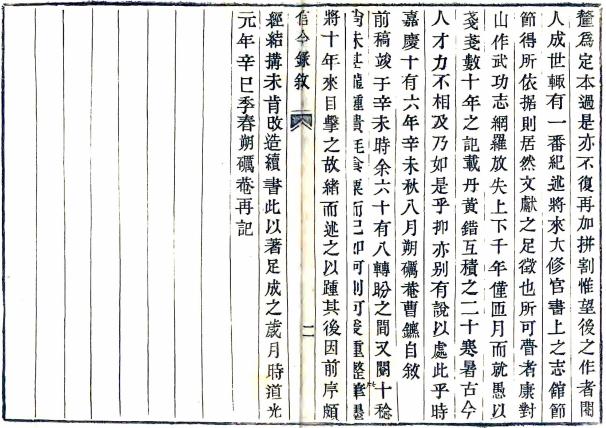 釐爲定本過是亦不復再加拼割惟望後之作者閱
人成世輒有一番紀述將來大修官書上之志館節
節得所依据則居然文獻之足徵也所可者康對
山作武功志網羅放失上下千年僅匝月而就愚以
戔戔數十年之記載丹黃錯互積之二十寒暑古今
人才力不相及乃如是乎抑亦别有說以處此乎時
嘉慶十有六年辛未秋八月朔礪菴曹鑣自敘
前稿竣于辛未時余六十有八轉盼之間又閱十稔
尚未甚龍鍾耗食粟而已如何則可爰重整筆墨
將十年來目擊之故緒而述之以踵其後因前序頗
信今錄敘 二
經結搆未肯改造續書此以著足成之歲月時道光
元年辛巳季春朔礪菴再記